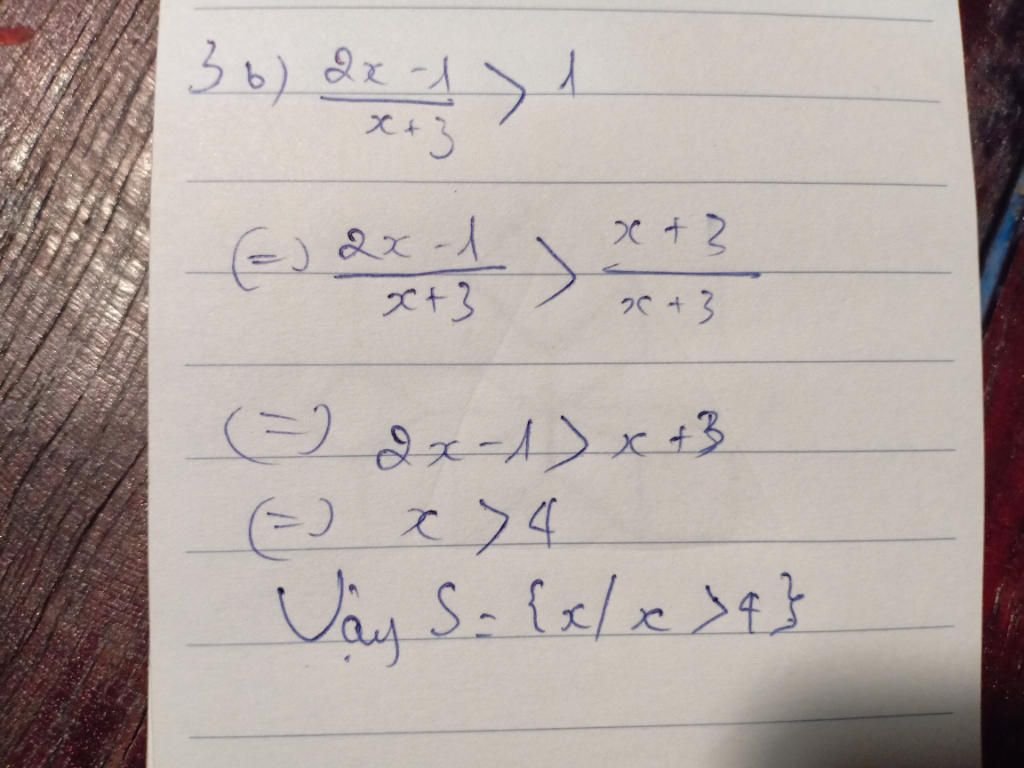 3b) \frac{2x-1}{x+3} > 1
(=) \frac{2x-1}{x+3} > \frac{x+3}{x+3}
(=) 2x-1 > x+3
(=) x > 4
Vậy S = {x/x > 4}